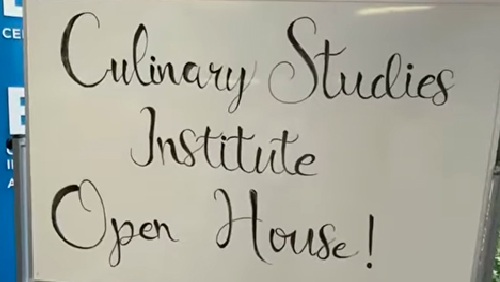 Culinary Studies
Institute
Open House!